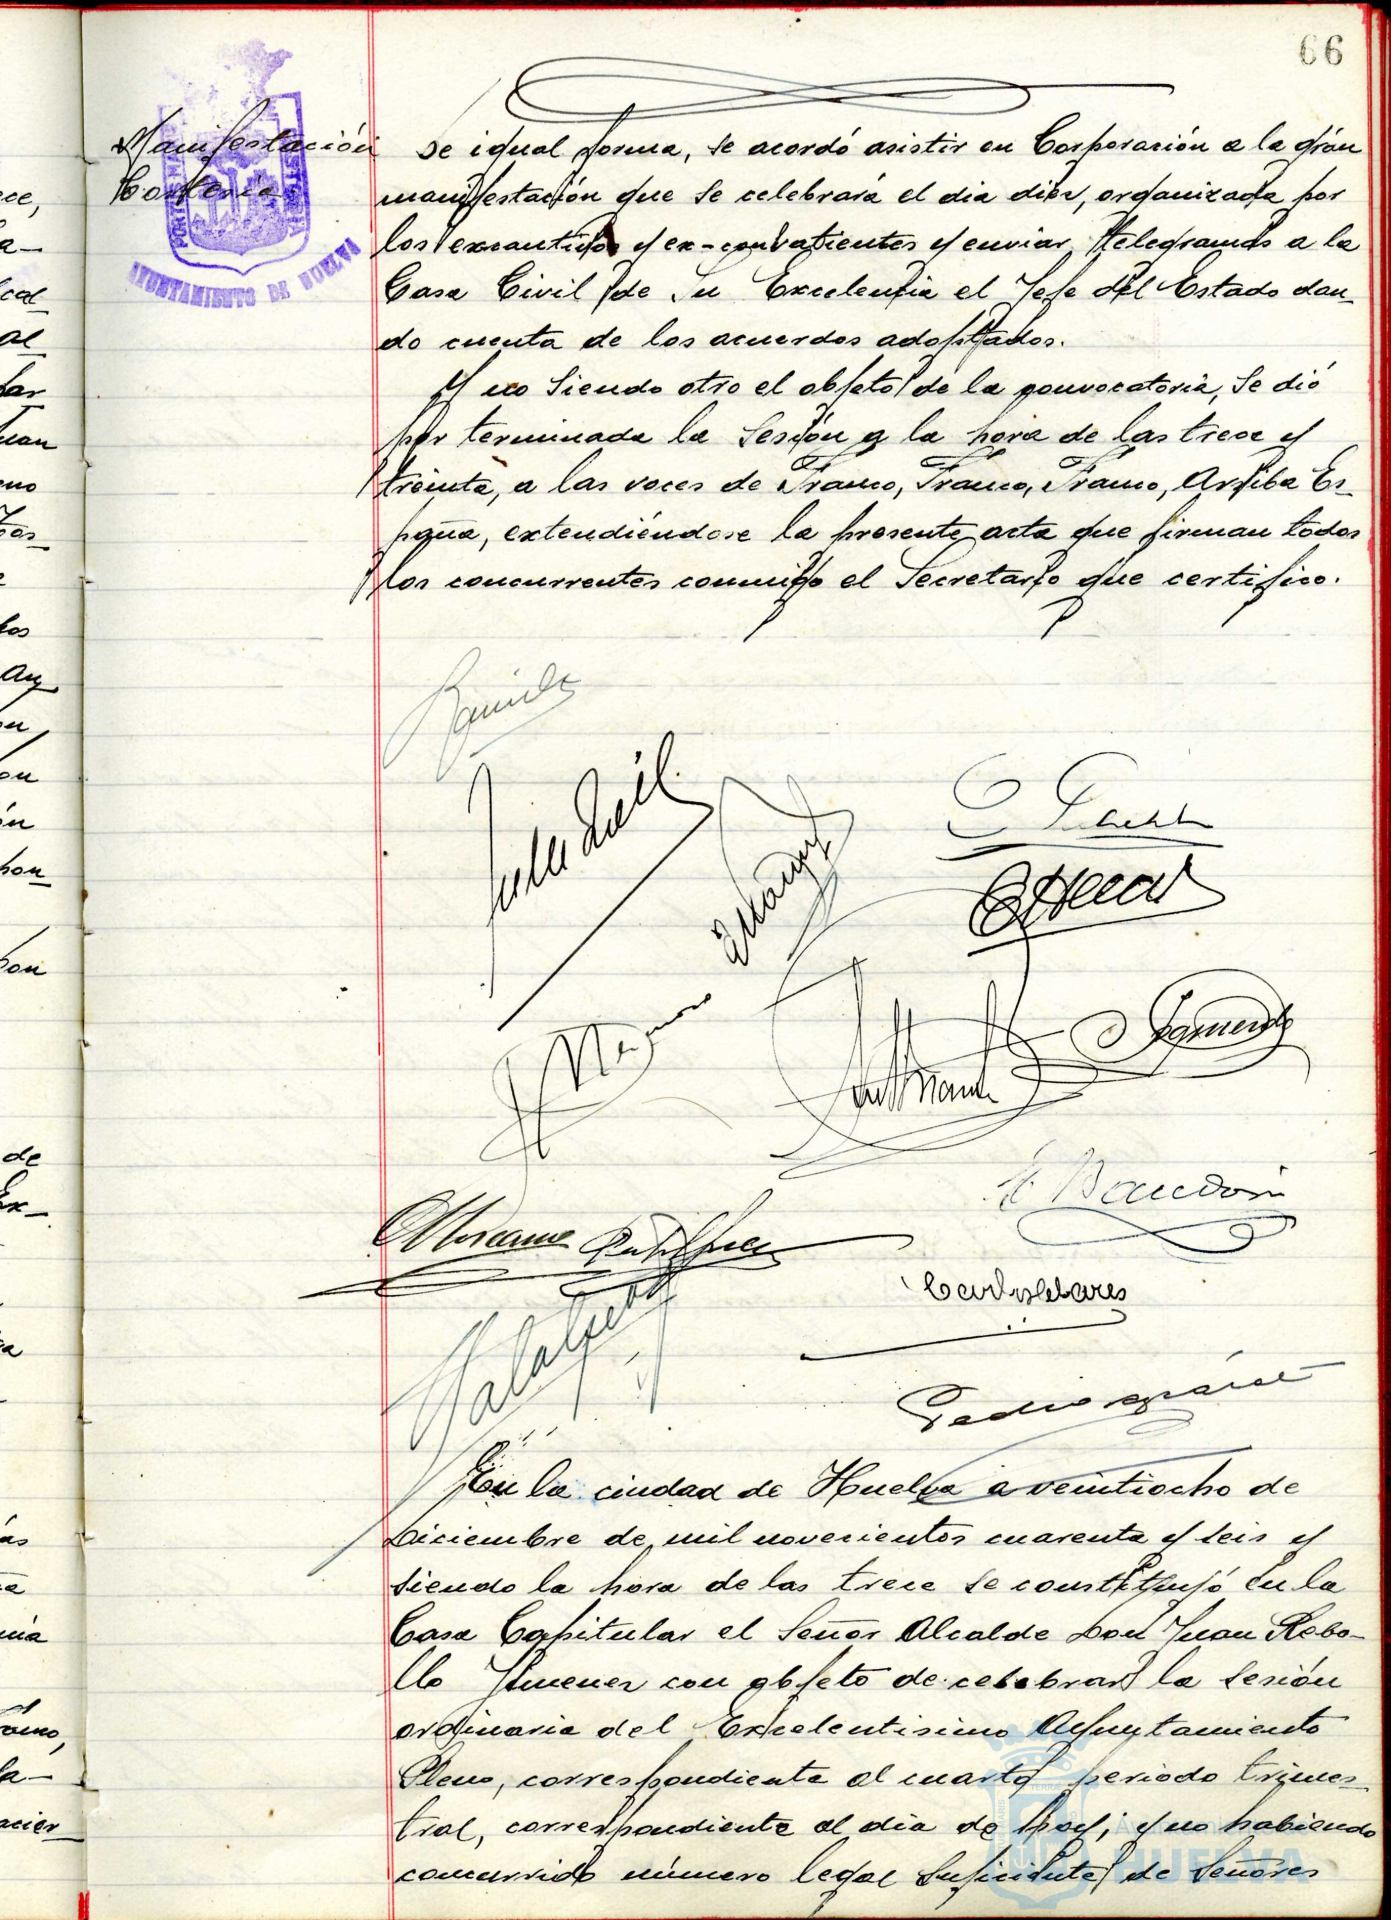 66
Manifestación
PORTUS MARIS ET TERRAE
AYUNTAMIENTO DE HUELVA
De igual forma, se acordó asistir en Corporación a la gran
manifestación que se celebrará el dia diez, organizada por
los excautivos y ex-combatientes y enviar telegramas a la
Casa Civil de Su Excelencia el Jefe del Estado dan-
do cuenta de los acuerdos adoptados.
Y no siendo otro el objeto de la convocatoria, se dió
por terminada la Sesión a la hora de las trece y
treinta, a las voces de Franco, Franco, Franco, Arriba Es-
paña, extendiéndose la presente acta que firman todos
los concurrentes conmigo el Secretario que certifico.
Izquierdo
Carlos
Pedro
En la ciudad de Huelva a veintiocho de
Diciembre de mil novecientos cuarenta y seis y
siendo la hora de las trece se constituyó en la
Casa Capitular el Señor Alcalde Don Juan Rebo-
llo Jimenez con objeto de celebrar la sesión
ordinaria del Excelentisimo Ayuntamiento
Pleno, correspondiente al cuarto periodo trimes-
tral, correspondiente al dia de hoy; y no habiendo
concurrido número legal suficiente de Señores
HUELVA